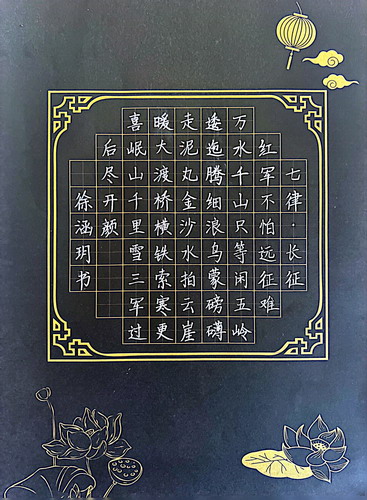 七律·长征
红军不怕远征难
万水千山只等闲五岭
逶迤腾细浪乌蒙磅礴
走泥丸金沙水拍云崖
暖大渡桥横铁索寒更
喜岷山千里雪三军过
后尽开颜
徐涵玥书